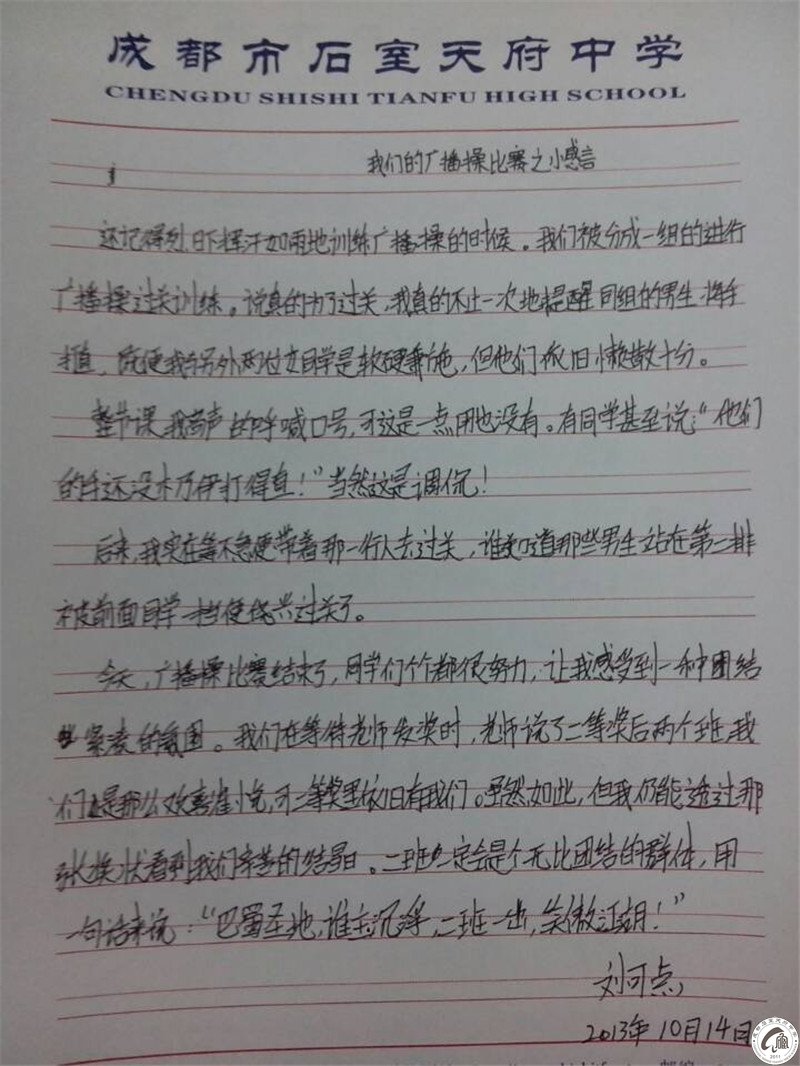 成都市石室天府中学
CHENGDU SHISHI TIANFU HIGH SCHOOL
我们的广播操比赛之小感言
还记得烈日下挥汗如雨地训练广播操的时候。我们被分成一组的进行
广播操过关训练。说真的为了过关,我真的不止一次地提醒同组的男生将手
打直,即便我与另外两位女同学是软硬兼施,但他们依旧懒散十分。
整节课,我高声的呼喊口号,可这是一点用也没有。有同学甚至说:“他们
的手还没木乃伊打得直!”当然这是调侃!
后来,我实在等不急便带着那一行人去过关,谁知道那些男生站在第二排
被前面同学一挡便侥幸过关了。
今天,广播操比赛结束了,同学们个个都很努力,让我感受到一种团结
紧凑的氛围。我们在等待老师发奖时,老师说了二等奖后两个班,我
们还是那么欢喜雀悦,可二等奖里依旧有我们。虽然如此,但我仍能透过那
张奖状看到我们辛苦的结晶。二班一定会是个无比团结的群体,用
一句话来说:“巴蜀圣地,谁主沉浮,二班一出,笑傲江湖!”
刘可点
2013年10月14日